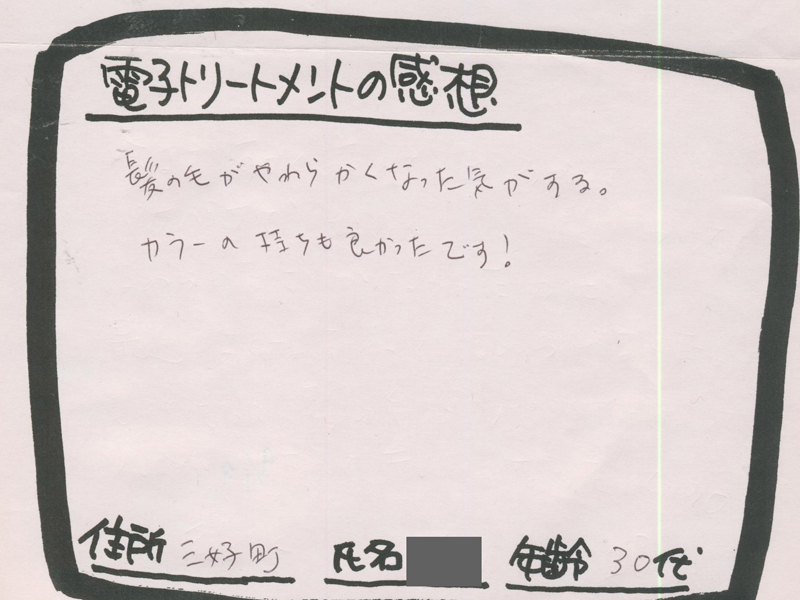 電子トリートメントの感想
髪の毛がやわらかくなった気がする。
カラーの持ちも良かったです!
住所 三好町 氏名 年齢 30代